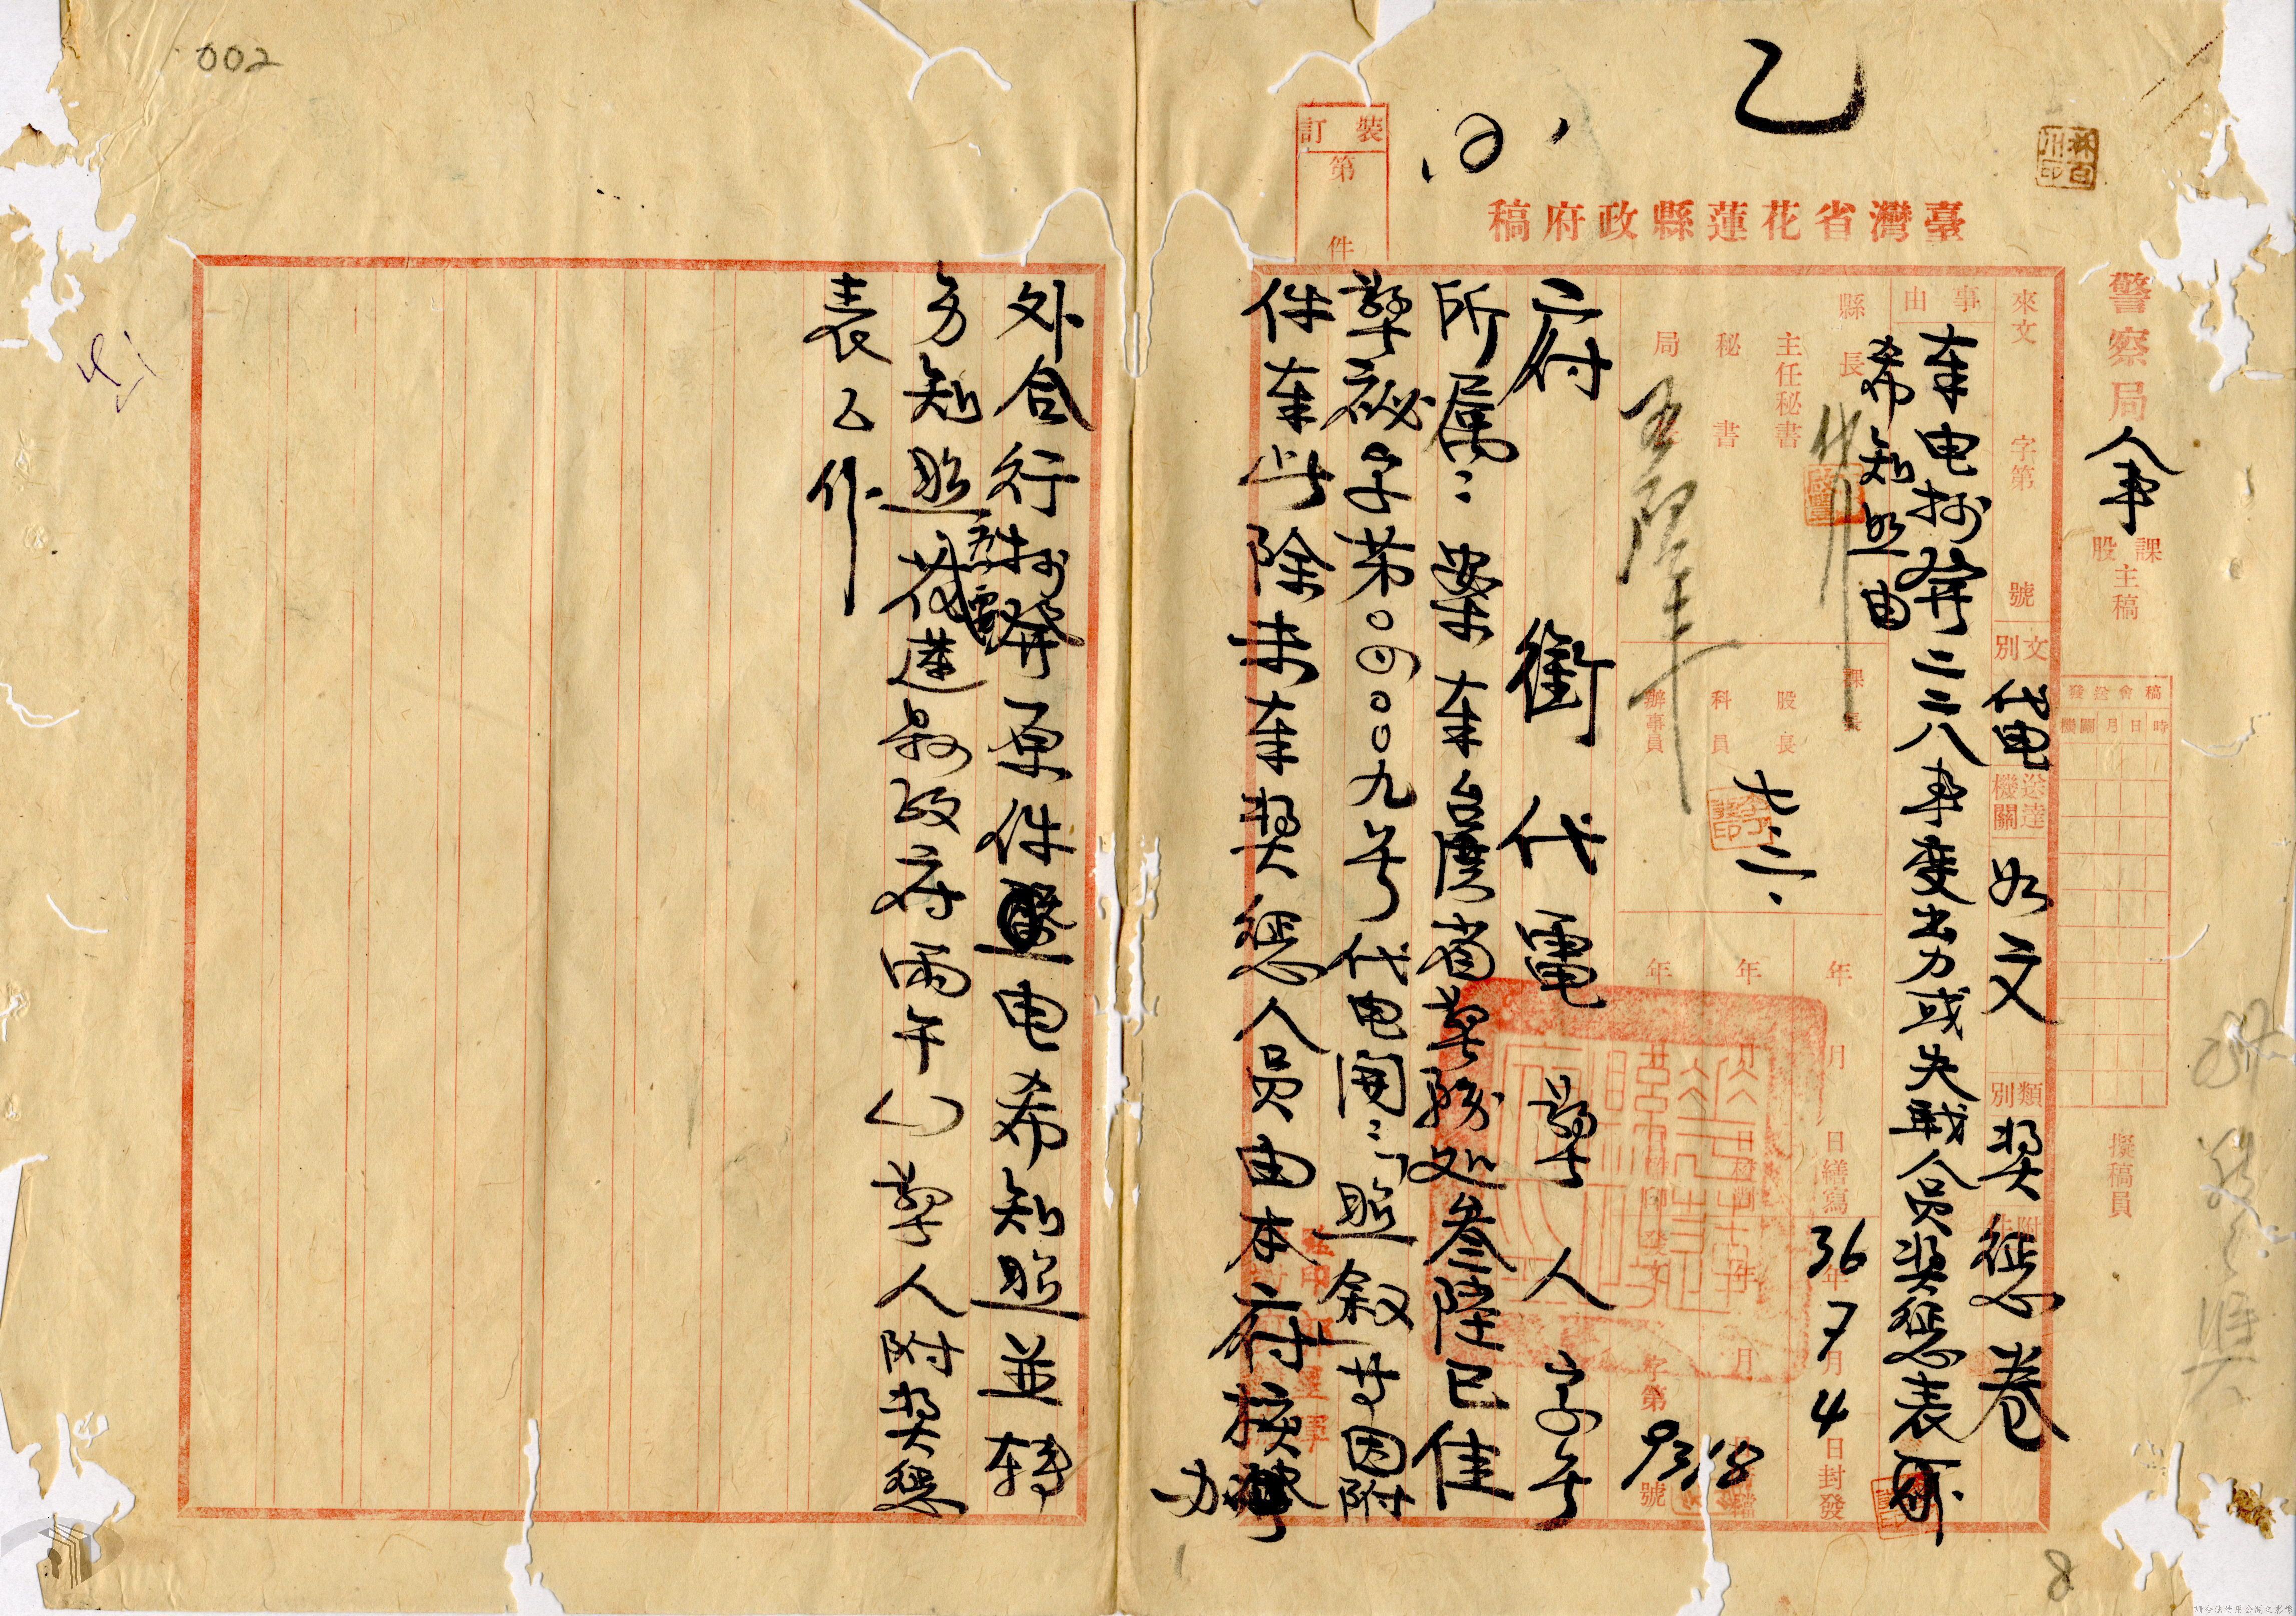 002
乙
臺灣省花蓮縣政府稿
裝訂
第 件
警察局
人事
課
股
主稿
擬稿員
稿會送發
時日月關機
來文 字第 號
文別 代電
送達機關 如文
類別 獎懲卷
附件
事由
奉电抄發二二八事變出力或失職人員獎懲表
希知照由
縣長
主任秘書
秘書
局
課長
股長
科員
辦事員
七、三、
年 月 日繕寫
36年7月4日封發
字第9318號
府銜代電 警人字号
所属:案奉台灣省警務处叁陸巳佳
警秘字第〇四〇〇九号代电開:「照叙」等因附
件奉此除未奉獎懲人員由本府核办
外合行抄發原件電希知照並轉
飭知照花蓮縣政府午()警人附獎懲
表乙件
8
請合法使用公開之影像